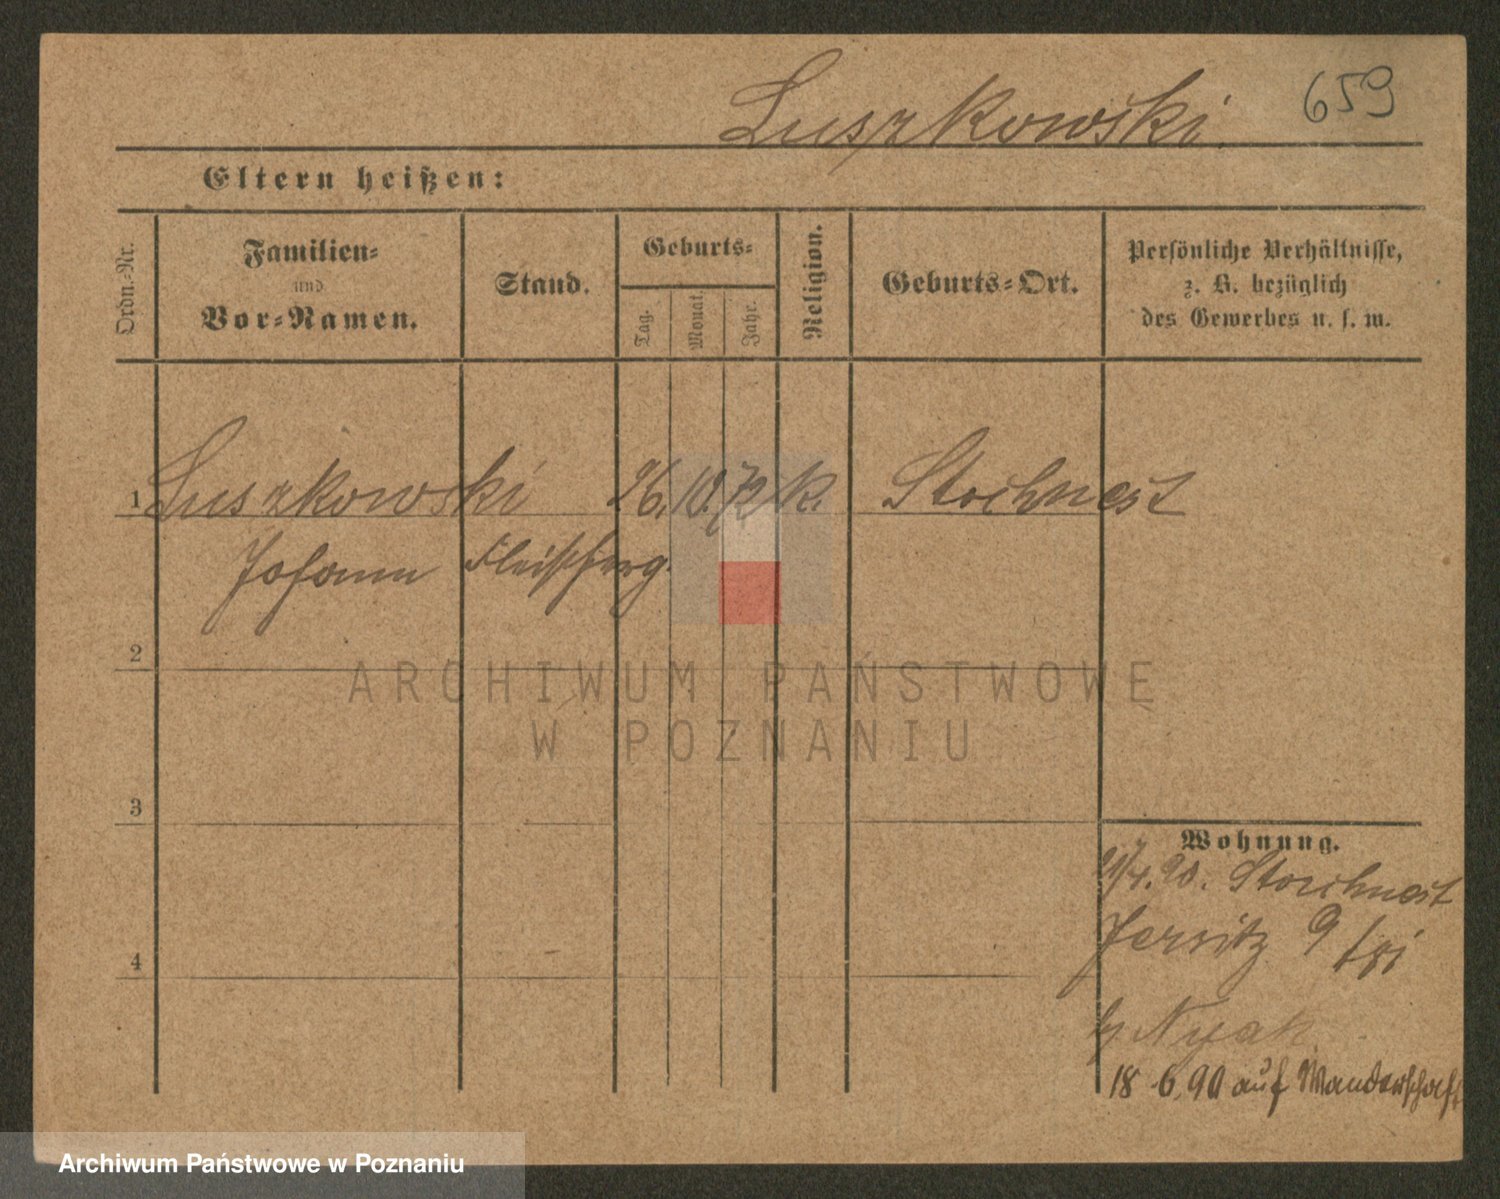 Luszkowski. 659
Eltern heißen:
Ordn.-Nr.
Familien-
und
Vor-Namen.
Stand.
Geburts-
Tag.
Monat.
Jahr.
Religion.
Geburts-Ort.
Persönliche Verhältnisse,
z. B. bezüglich
des Gewerbes u. s. w.
1 Luszkowski 26. 10. 72 K. Storchnest
Johann Fleischerg.
2
ARCHIWUM PAŃSTWOWE
W POZNANIU
3
Wohnung.
90. Storchnest
Jersitz 9
4
b/ Nyak
18 6.90 auf Wanderschaft
Archiwum Państwowe w Poznaniu